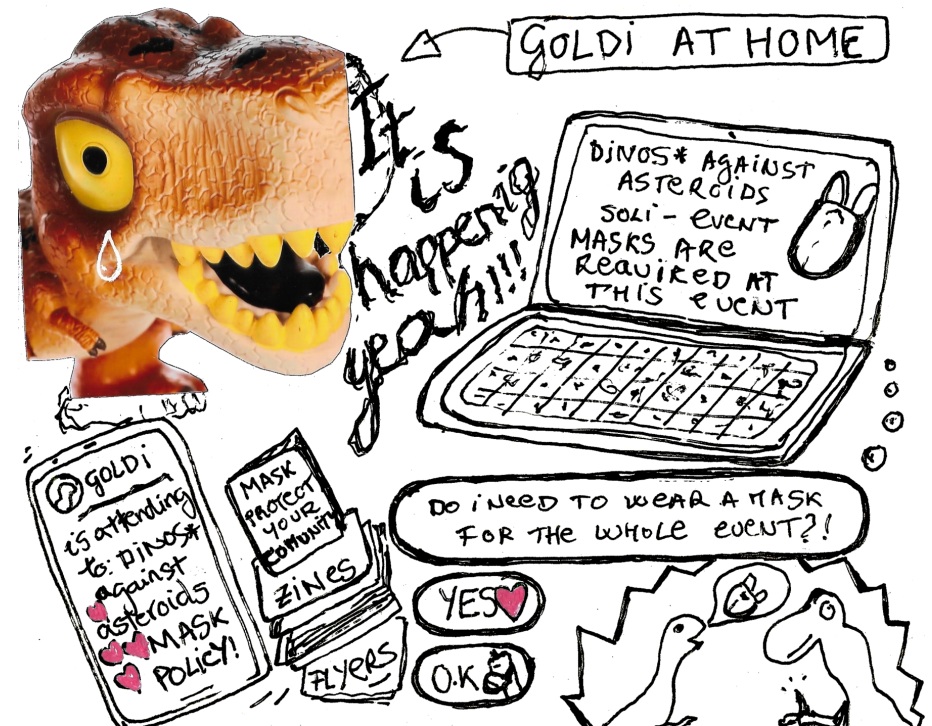 GOLDi AT HOME
It
is
happenig
yeah!!!
DiNOS* AGAiNST
ASTEROiDS
SOLi - EVENT
MASKS ARE
REQUiRED AT
THiS EVENT
GOLDi
is attending
to: DiNOS*
against
asteroids
MASK
POLiCY!
MASK
PROTECT
YOUR
COMUNITY
ZiNES
FLYERS
DO i NEED TO WEAR A MASK
FOR THE WHOLE EVENT?!
YES
O.K